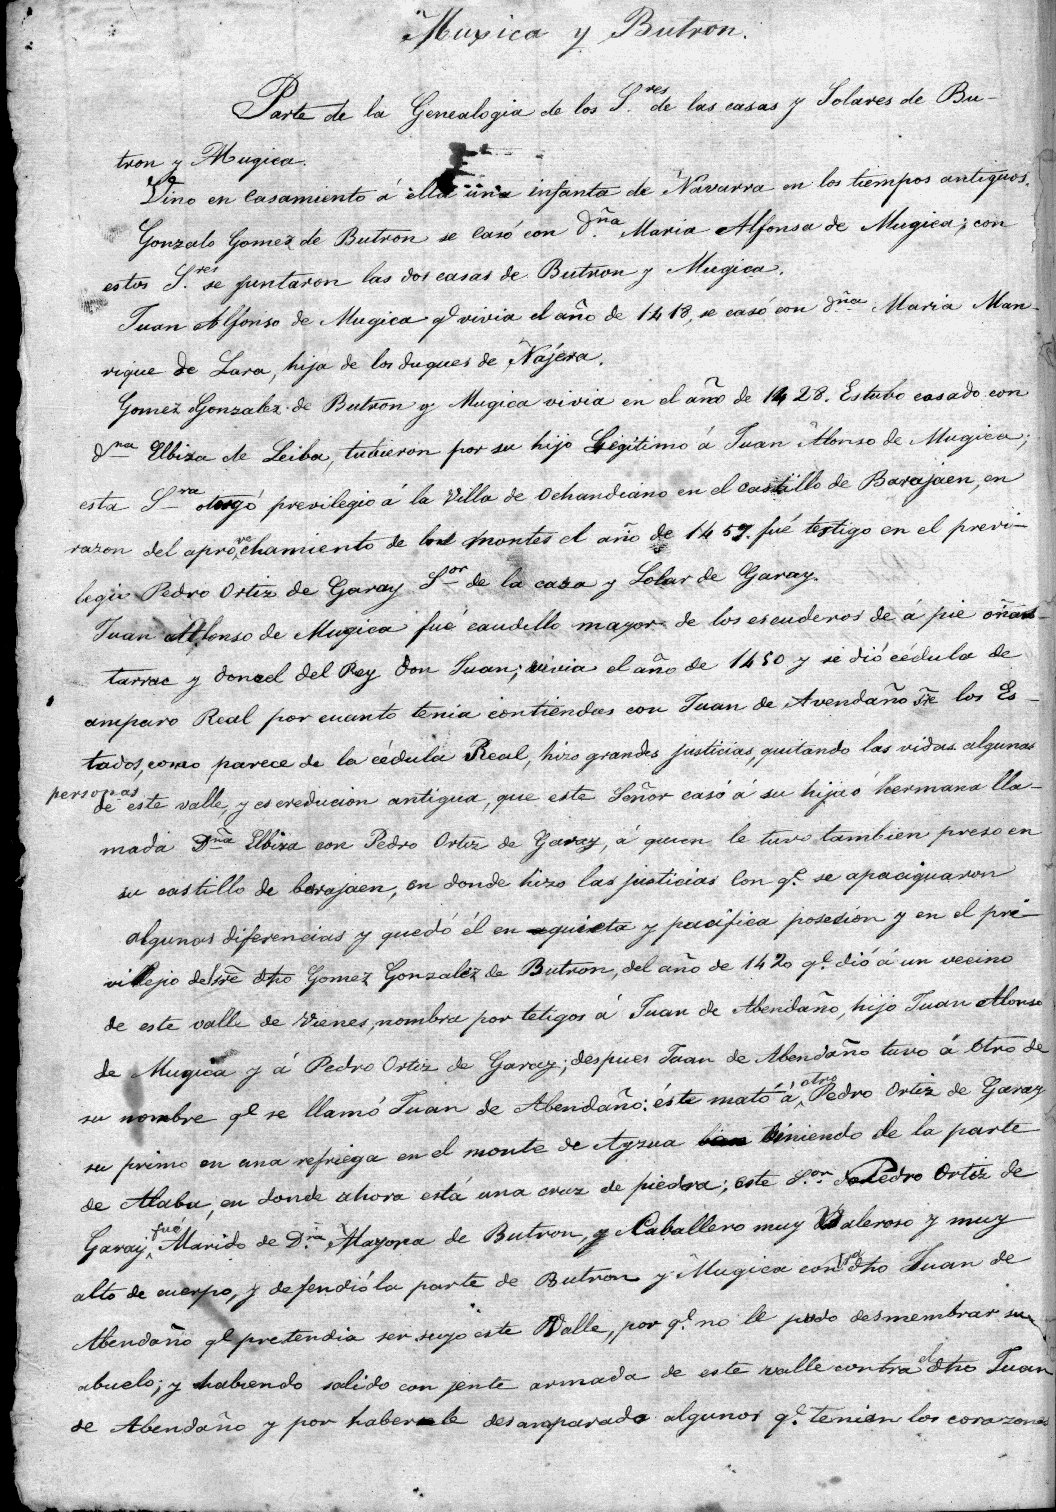 Muxica y Butron.
Parte de la Genealogia de los S.res de las casas y Solares de Bu-
tron y Mugica.
Vino en casamiento á ella una infanta de Navarra en los tiempos antiguos.
Gonzalo Gomez de Butron se casó con d.ña Maria Alfonsa de Mugica; con
estos S.res se juntaron las dos casas de Butron y Mugica.
Juan Alfonso de Mugica q.e vivia el año de 1418, se casó con d.ña Maria Man-
rique de Lara, hija de los duques de Nájera.
Gomez Gonzalez de Butron y Mugica vivia en el año de 1428. Estubo casado con
d.na Elbira de Leiba, tubieron por su hijo Legitimo á Juan Alonso de Mugica;
esta S.ra otorgó previlegio á la Villa de Ochandiano en el castillo de Barajaen, en
razon del aprovechamiento de los montes el año de 1457. fué testigo en el previ-
legio Pedro Ortiz de Garay S.or de la casa y Solar de Garay.
Juan Alfonso de Mugica fué caudillo mayor de los escuderos de á pie
y doncel del Rey don Juan; vivia el año de 1450 y se dió cédula de
amparo Real por cuanto tenia contiendas con Juan de Avendaño s̃re los Es-
tados, como parece de la cédula Real, hizo grandes justicias, quitando las vidas algunas
personas
de este valle, y es creducion antigua, que este Señor casó á su hija ó hermana lla-
mada D.ña Elbira con Pedro Ortiz de Garay, á quien le tuvo tambien preso en
su castillo de barajaen, en donde hizo las justicias con q.e se apaciguaron
algunas diferencias y quedó él en quieta y pacifica posesion y en el pri-
villejio del dho Gomez Gonzalez de Butron, del año de 1420 q.e dió á un vecino
de este valle de Vienes, nombra por tetigos á Juan de Abendaño, hijo Juan Alonso
de Mugica y á Pedro Ortiz de Garay; despues Juan de Abendaño tuvo á otro de
su nombre q.e se llamó Juan de Abendaño: éste mató á otro Pedro Ortiz de Garay
su primo en una refriega en el monte de Ayzua biniendo de la parte
de Alaba, en donde ahora está una cruz de piedra; este S.or Pedro Ortiz de
Garay, fué Marido de D.ña Mayora de Butron, y Caballero muy Baleroso y muy
alto de cuerpo, y defendió la parte de Butron y Mugica contra dho Juan de
Abendaño q.e pretendia ser suyo este Valle, por q.e no le pudo desmembrar su
abuelo; y habiendo salido con jente armada de este valle contra el dho Juan
de Abendaño y por haberle desamparado algunos q.e tenian los corazones